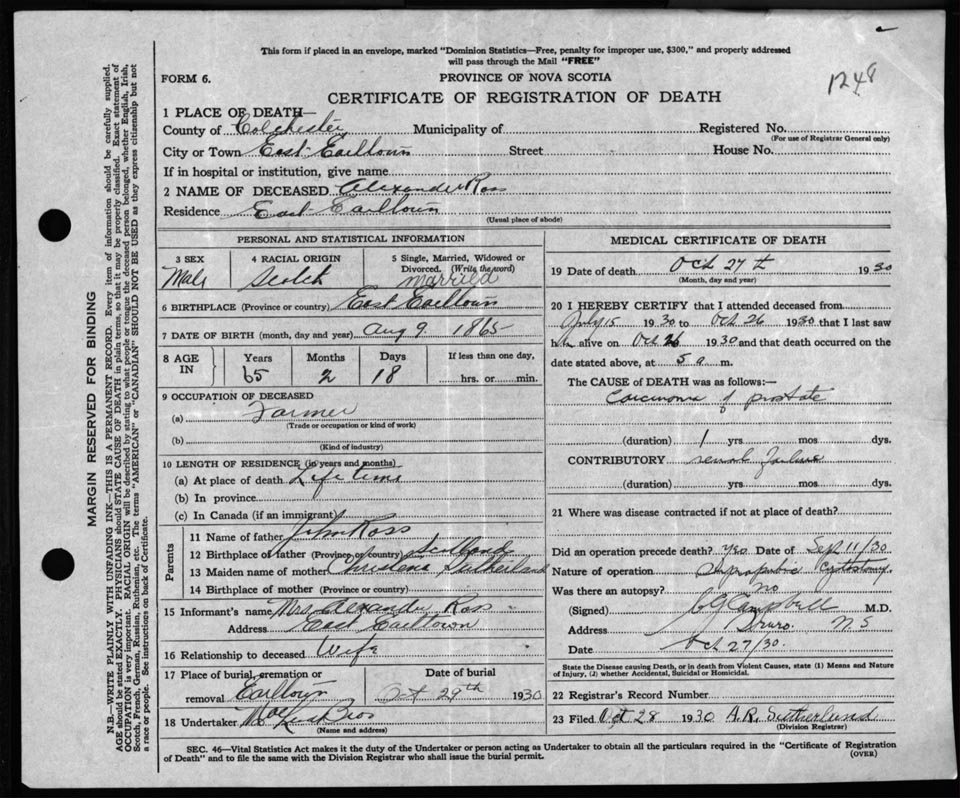 This form if placed in an envelope, marked "Dominion Statistics—Free, penalty for improper use, $300," and properly addressed
will pass through the Mail "FREE"
1248
FORM 6.
PROVINCE OF NOVA SCOTIA
CERTIFICATE OF REGISTRATION OF DEATH
1 PLACE OF DEATH—
County of Colchester Municipality of Registered No.
(For use of Registrar General only)
City or Town East Earltown Street House No.
If in hospital or institution, give name
2 NAME OF DECEASED Alexander Ross
Residence East Earltown
(Usual place of abode)
PERSONAL AND STATISTICAL INFORMATION
3 SEX
Male
4 RACIAL ORIGIN
Scotch
5 Single, Married, Widowed or
Divorced. (Write the word)
Married
6 BIRTHPLACE (Province or country) East Earltown
7 DATE OF BIRTH (month, day and year) Aug 9 1865
8 AGE IN
Years Months Days If less than one day,
65 2 18 hrs. or min.
9 OCCUPATION OF DECEASED
(a) Farmer
(Trade or occupation or kind of work)
(b)
(Kind of industry)
10 LENGTH OF RESIDENCE (in years and months)
(a) At place of death Life time
(b) In province
(c) In Canada (if an immigrant)
Parents
11 Name of father John Ross
12 Birthplace of father (Province or country) Scotland
13 Maiden name of mother Christena Sutherland
14 Birthplace of mother (Province or country)
15 Informant's name Mrs Alexander Ross
Address East Earltown
16 Relationship to deceased Wife
17 Place of burial, cremation or Date of burial
removal Earltown Oct 29th 1930
18 Undertaker Bros
(Name and address)
MEDICAL CERTIFICATE OF DEATH
19 Date of death Oct 27th 1930
(Month, day and year)
20 I HEREBY CERTIFY that I attended deceased from
July 15 1930 to Oct 26 1930 that I last saw
him alive on Oct 26 1930 and that death occurred on the
date stated above, at 5 a. m.
The CAUSE OF DEATH was as follows:—
Carcinoma of prostate
(duration) 1 yrs mos dys.
CONTRIBUTORY renal failure
(duration) yrs mos dys.
21 Where was disease contracted if not at place of death?
Did an operation precede death? yes Date of Sept 11/30
Nature of operation Suprapubic Cystostomy
Was there an autopsy? no
(Signed) C G Campbell M.D.
Address Truro. N S
Date Oct 27/30.
State the Disease causing Death, or in death from Violent Causes, state (1) Means and Nature
of Injury, (2) whether Accidental, Suicidal or Homicidal.
22 Registrar's Record Number
23 Filed Oct 28 1930 A.R. Sutherland
(Division Registrar)
SEC. 46—Vital Statistics Act makes it the duty of the Undertaker or person acting as Undertaker to obtain all the particulars required in the "Certificate of Registration
of Death" and to file the same with the Division Registrar who shall issue the burial permit.
(OVER)
MARGIN RESERVED FOR BINDING
N.B.—WRITE PLAINLY WITH UNFADING INK—THIS IS A PERMANENT RECORD. Every item of information should be carefully supplied.
AGE should be stated EXACTLY. PHYSICIANS should STATE CAUSE OF DEATH in plain terms, so that it may be properly classified. Exact statement of
OCCUPATION is very important. RACIAL ORIGIN will be described by stating to what people or tongue the deceased person belonged, whether English, Irish,
Scotch, French, German, Russian, Ruthenian, etc. The terms "AMERICAN" or "CANADIAN" SHOULD NOT BE USED as they express citizenship but not
a race or people. See instructions on back of Certificate.